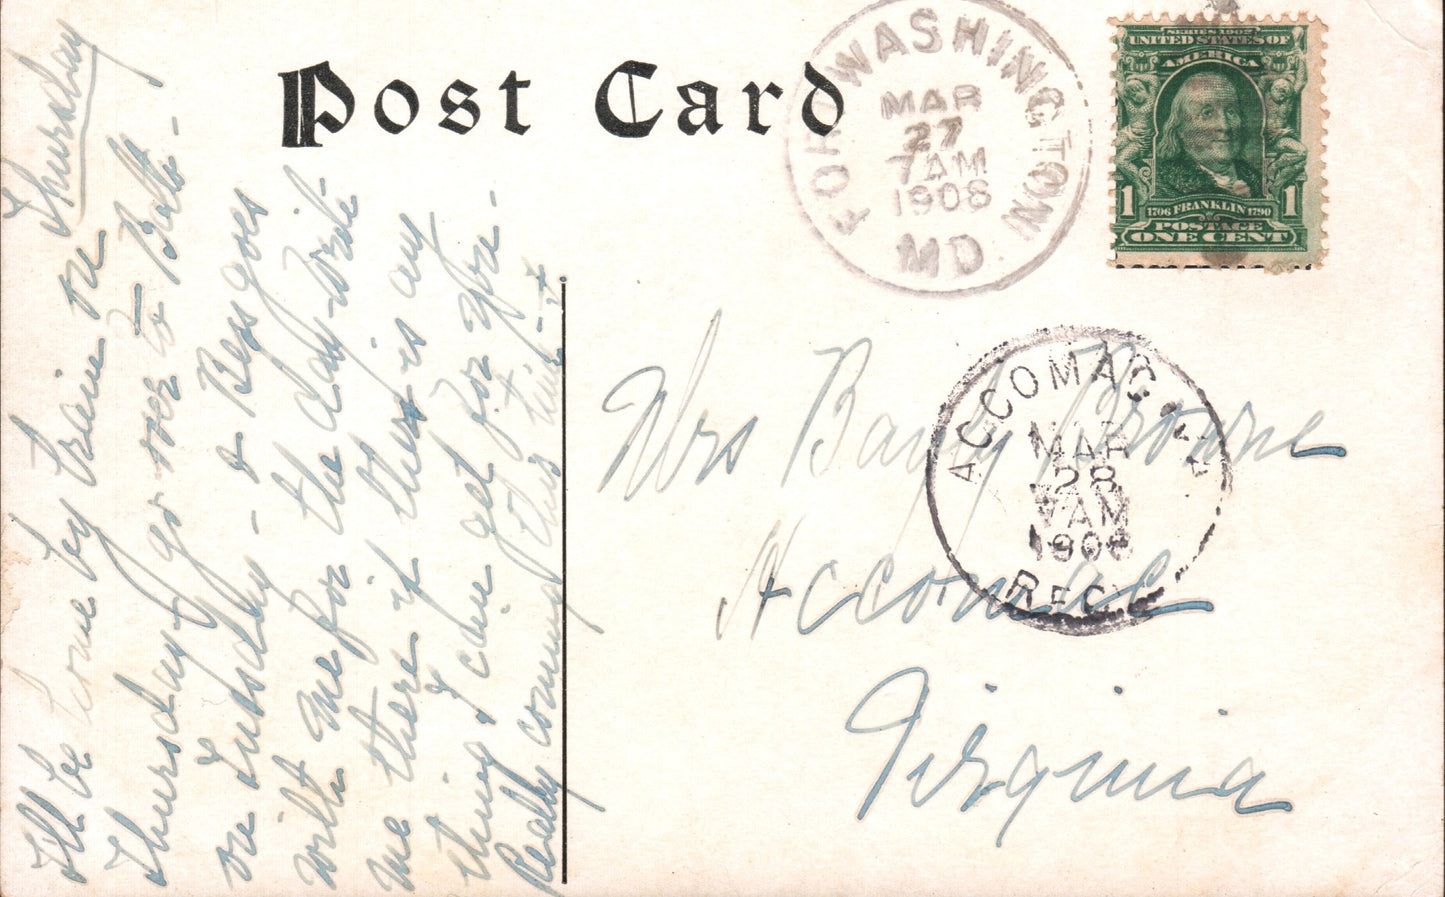 Post Card
FORT WASHINGTON
MAR
27
7 AM
1908
MD.
SERIES 1902
UNITED STATES OF
AMERICA
1
1
1706 FRANKLIN 1790
POSTAGE
ONE CENT
ACCOMAC
MAR
28
AM
1908
REC'D
Mrs Browne
Accomac
Virginia
Thursday
I'll be home by train on
Thursday & go over to Balto -
on Tuesday - & Bess goes
with me for the day. Write
me there if there is any
thing I can get for you -
Really coming this time -